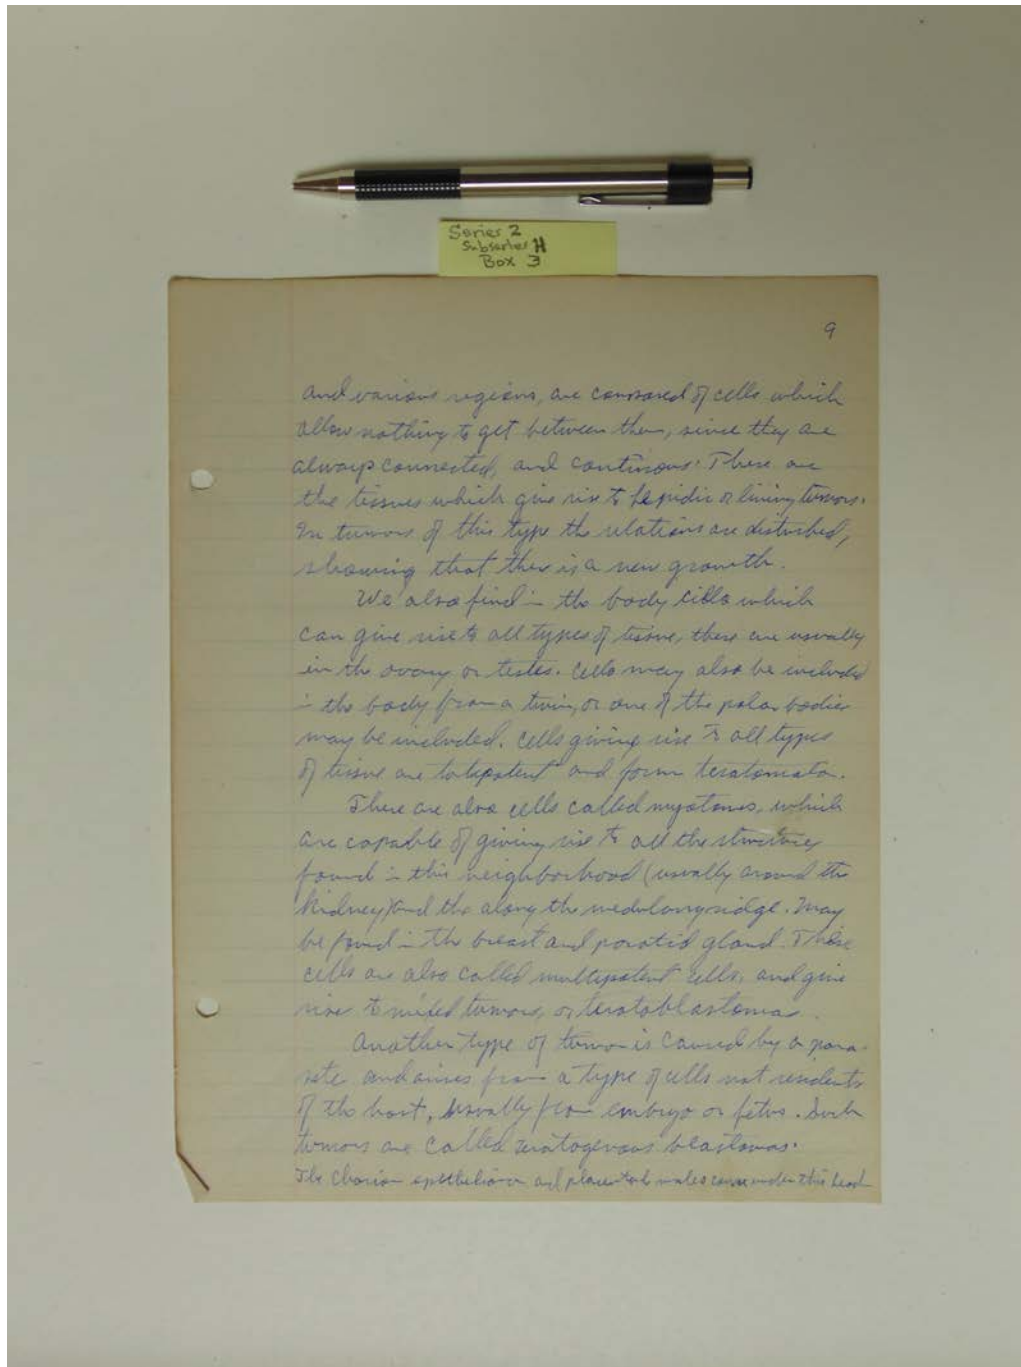 Series 2
Subseries H
Box 3
9
and various regions, are composed of cells which
allow nothing to get between them, since they are
always connected, and continous. These are
the tissues which give rise to lepidic or lining tumors.
In tumors of this type the relations are disturbed,
showing that there is a new growth.
We also find in the body cells which
can give rise to all types of tissue, these are usually
in the ovary or testes. Cells may also be included
in the body from a twin, or one of the polar bodies
may be included. Cells giving rise to all types
of tissue are totipotent and form teratomata.
There are also cells called myotomes, which
are capable of giving rise to all the structures
found in this neighborhood (usually around the
kidney) and the along the medullary ridge. May
be found in the breast and parotid gland. These
cells are also called multipotent cells, and give
rise to mixed tumors, or teratoblastoma.
Another type of tumor is caused by a para-
site and arises from a type of cells not residents
of the host, usually from embryo or fetus. Such
tumors are called blastomas.
The Chorion epithelioma and placental moles come under this head